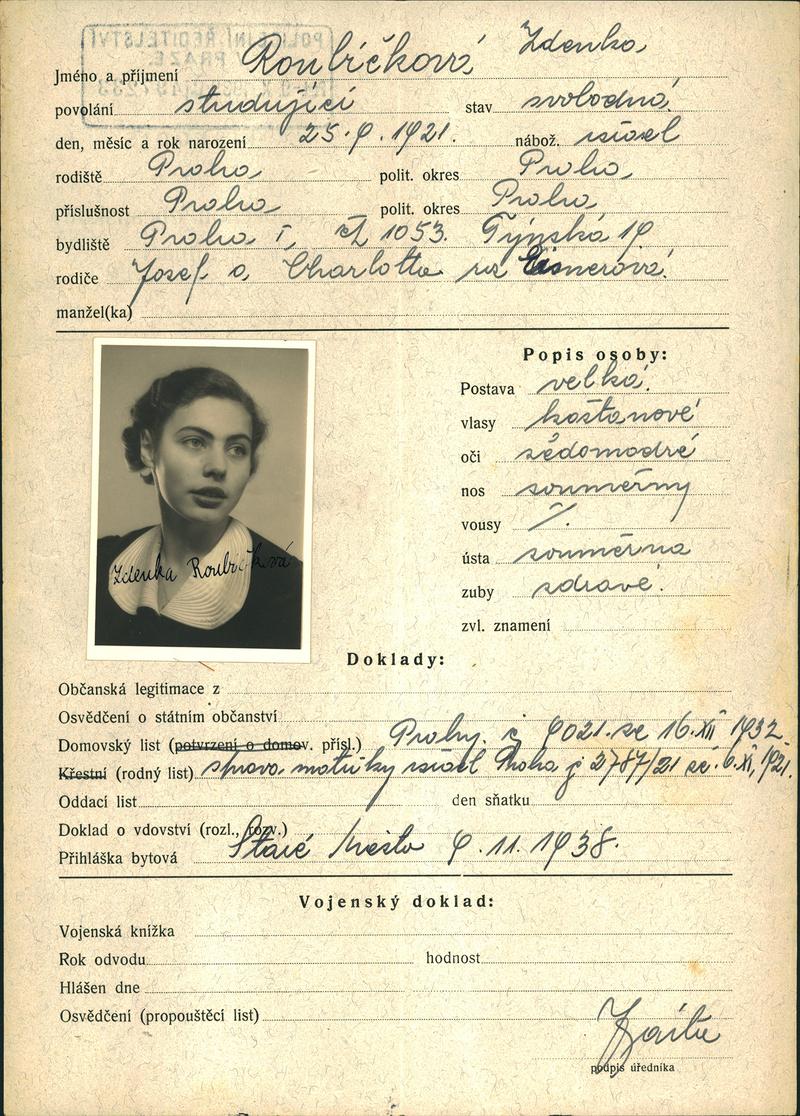 POLICEJNÍ ŘEDITELSTVÍ
V PRAZE.
Jméno a příjmení Roubíčková Zdenka
povolání studující stav svobodná.
den, měsíc a rok narození 25.9.1921. nábož. israel
rodiště Praha polit. okres Praha
příslušnost Praha polit. okres Praha
bydliště Praha I, čp 1053. Týnská 19
rodiče Josef a Charlotta roz Eisnerová.
manžel(ka)
Popis osoby:
Postava velká.
vlasy kaštanové
oči šedomodré
nos souměrný
vousy /.
ústa souměrna
zuby zdravé.
zvl. znamení
Zdenka Roubíčková
Doklady:
Občanská legitimace z
Osvědčení o státním občanství
Domovský list (potvrzení o domov. přísl.) Prahy. č 9021. ze 16.XII 1932
Křestní (rodný list) správa matriky israel Praha č 2787/21 ze. 6.XI,1921.
Oddací list den sňatku
Doklad o vdovství (rozl., rozv.)
Přihláška bytová Staré Město 9.11.1938.
Vojenský doklad:
Vojenská knížka
Rok odvodu hodnost
Hlášen dne
Osvědčení (propouštěcí list)
podpis úředníka